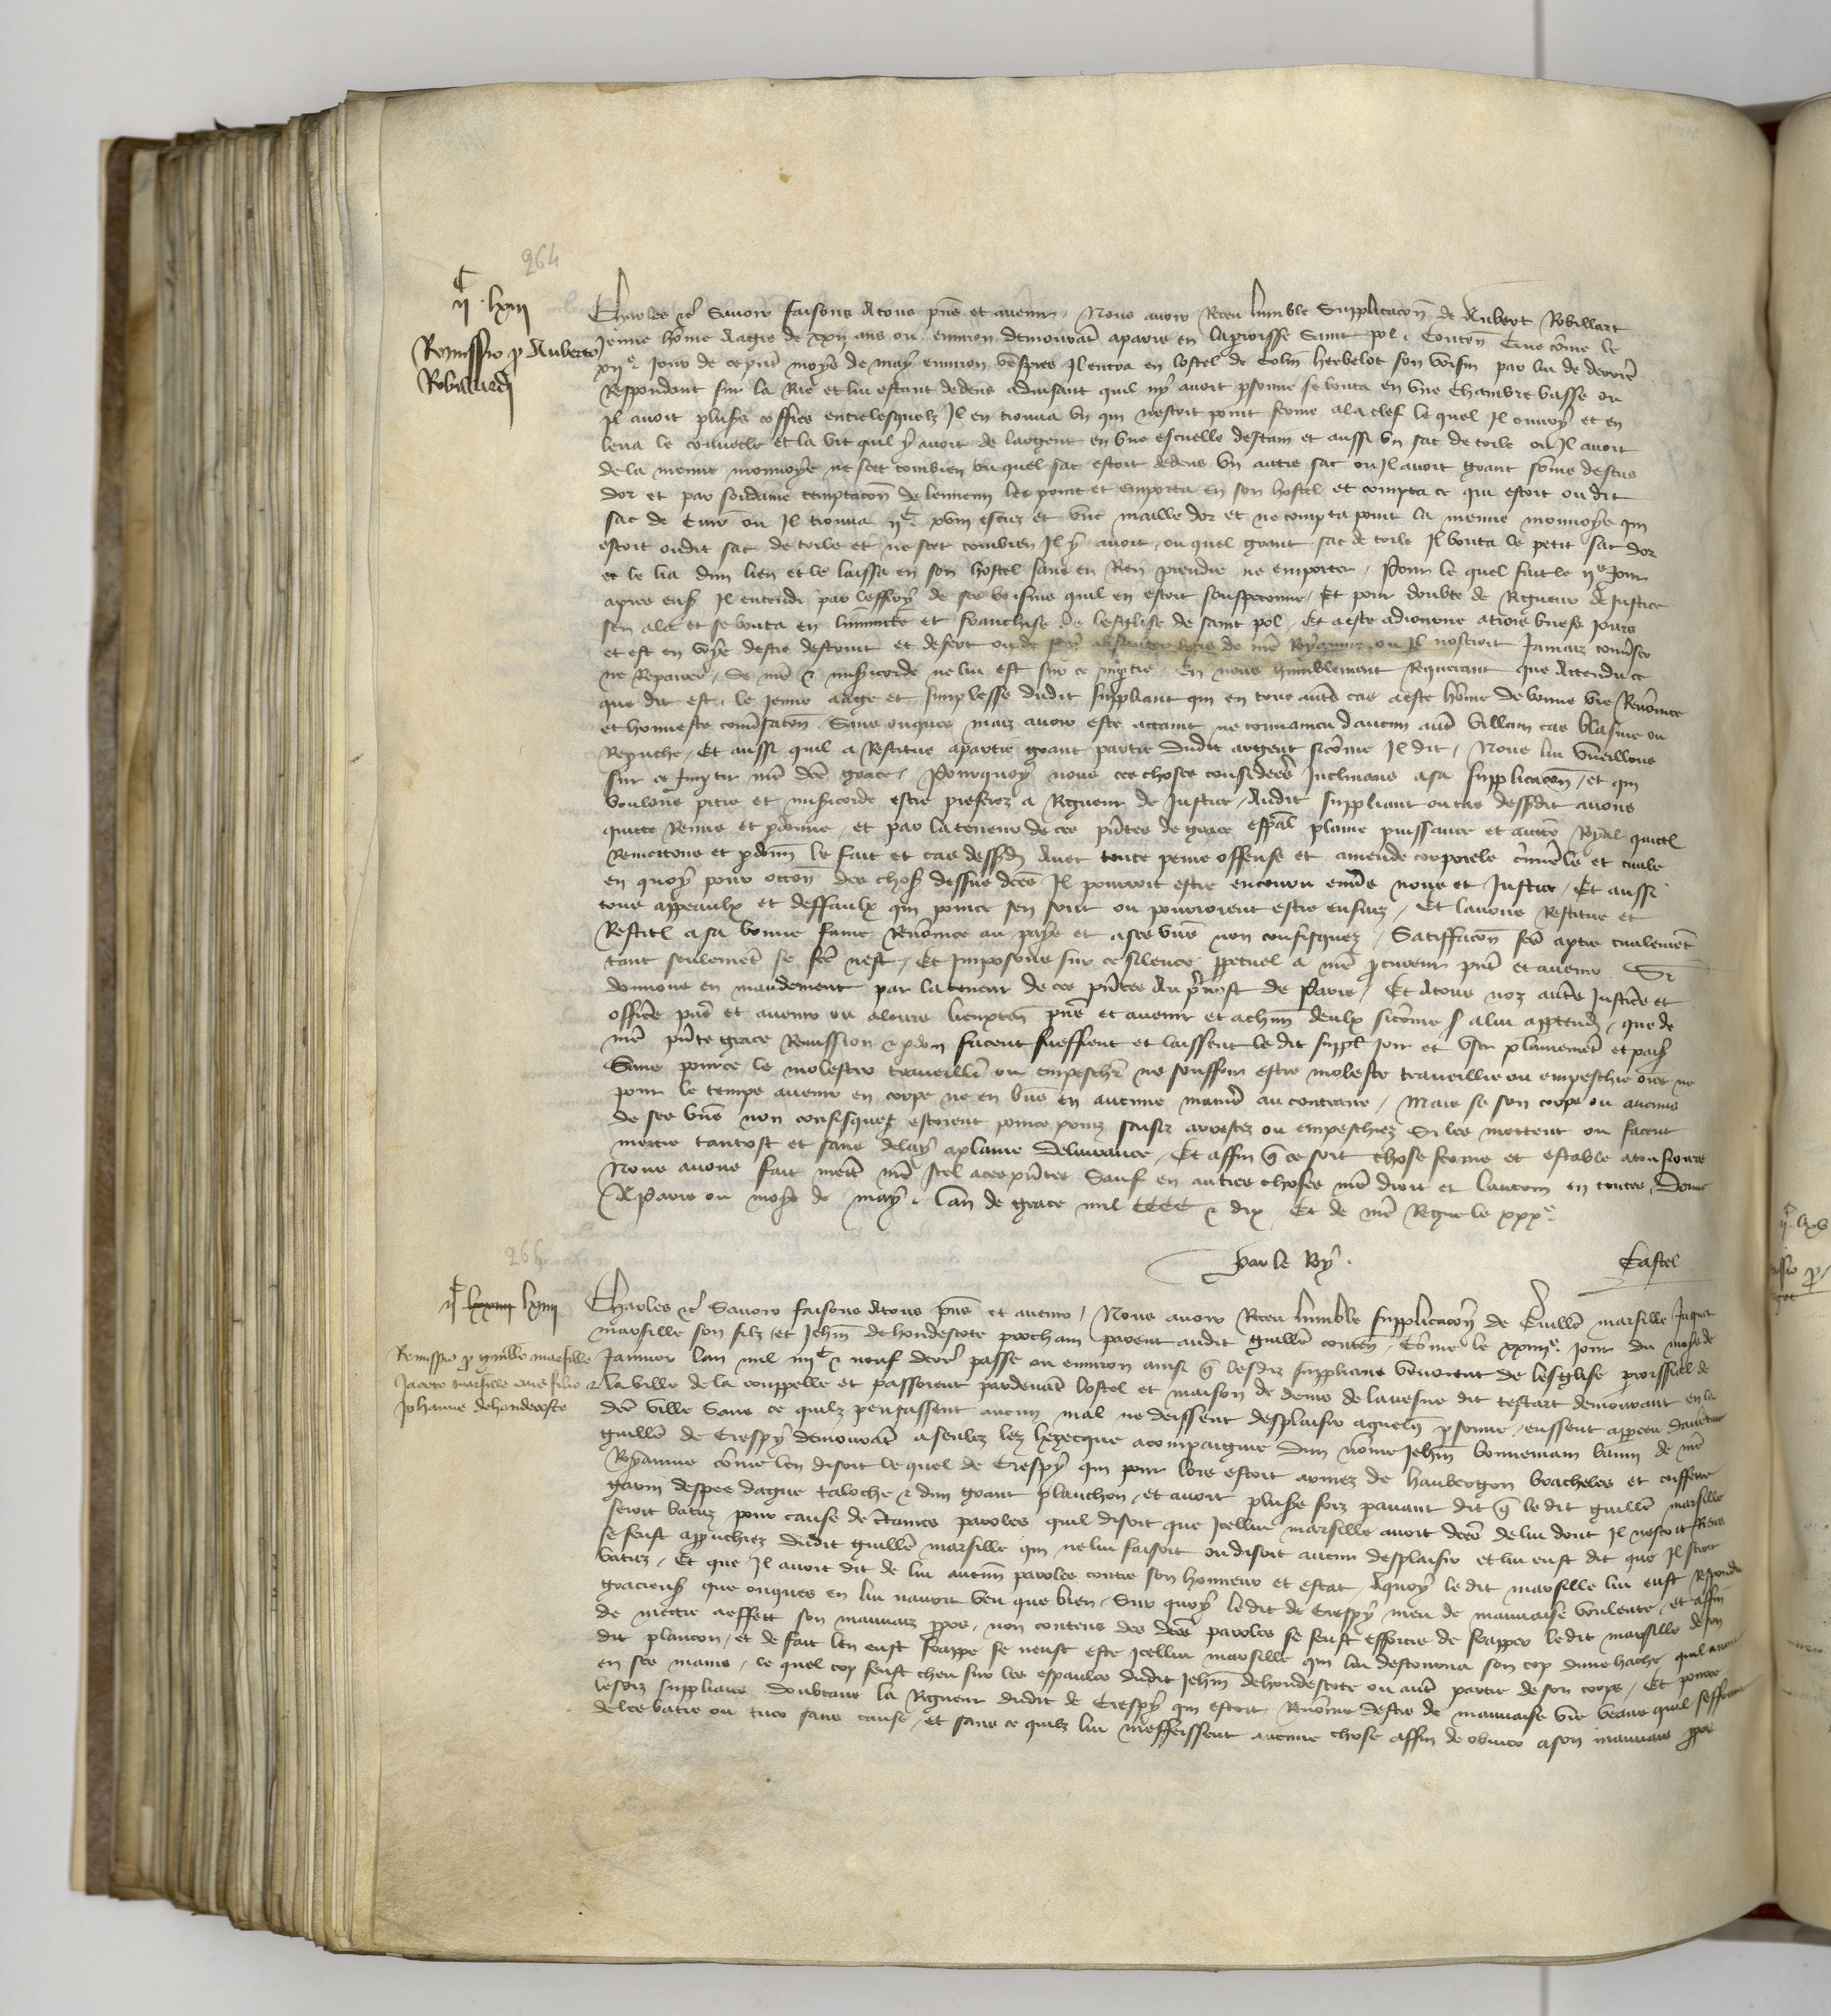 264
IIc LXIII
Remissio p Auberto
Robillardi
Charles etc Savoir faisons a tous pñs et avenir Nous avoir receu lumble supplicacoñ de Aubert Robillart
jeune hõme aagie de XXII ans ou environ demourãt a paris en la proisse saint pol Conteñ que cõme le
XIIe jour de ce pñt moys de may environ vespres Il entra en lostel de Colin herbelot son voisin par lui de derriẽ
Respondant sur la Rue et lui estant dedens advisant quil ny avoit psonne se bouta en une chambre basse ou
Il avoit plusẽs coffres entre lesquelz Il en trouva un qui nestoit point ferme a la clef le quel Il ouvry et en
leva le couvecle et la vit quil y avoit de largent en une escuelle destain et aussi un sac de toile ou Il avoit
de la menue monnoye ne scet combien ou quel sac estoit dedens un autre sac ou Il avoit grant sõme descus
dor et par soudaine temptacoñ de lennemi les print et emporta en son hostel et compta ce qui estoit ou dit
sac de Cuir ou Il trouva IIc XVIII escuz et une maille dor et ne compta point la menue monnoye qui
estoit oudit sac de toile et ne scet combien Il y avoit ou quel grant sac de toile Il bouta le petit sac dor
et le lia dun lien et le laissa en son hostel sans en Rien prendre ne emporter Pour le quel fait le IIe jour
apres ensẽ Il entendi par leffroy de ses voisins quil en estoit souspeconne Et pour doubte de Rigueur de justice
sen ala et se bouta en limmunite et franchise de lesglise de saint pol Et a este adiourne a trois briefs jours
et est en voye destre destruit et desert ou de soy absenter hors de nrẽ Royaume ou Il noseroit jamaiz convẽser
ne Reparer Se nrẽ grc et misẽicorde ne lui est sur ce impartie En nous humblement Requerant que Attendu ce
que dit est le jeune aage et simplesse dudit suppliant qui en tous autrẽs cas a este hõme de bonne vie Renõmee
et honneste convẽsacoñ Sans onques mais avoir este attaint ne convaincu daucun autẽ villain cas blasme ou
Reprouche Et aussi quil a Restitue a partie grant partie dudit argent sicõme Il dit Nous lui vueillons
sur ce Impartir nrẽ dcẽ grace Pourquoy nous ces choses considerees Inclinans a sa supplicacoñ et qui
voulons pitie et misẽicorde estre preferez a Rigueur de justice Audit suppliant ou cas dessusdit avons
quitte Remis et pdonne et par la teneur de ces pñtes de grace esp̃al plaine puissance et auctẽ Royal quictõs
Remettons et pdonnõs le fait et cas dessusd Avec toute peine offense et amende corporele crimẽle et civile
en quoy pour occoñ des chosẽs dessus dcẽs Il pourroit estre encouru envẽs nous et justice Et aussi
tous appeaulx et deffaulx qui pource sen sont ou pourroient estre ensuiz Et lavons Restitue et
Restituõs a sa bonne fame Renõmee au pays et a ses biẽs non confisquez Satisfacoñ faicẽ a partie civilemẽt
tant seulemẽt se faicẽ nest Et Imposons sur ce silence ppetuel a nrẽ procureur pñt et avenir Si
donnons en mandement par la teneur de ces pñtes Au p̃vost de Paris Et a tous noz autrẽs justicĩers et
officĩers pñs et avenir ou a leurs lieuxteñ pñs et avenir et a chũn deulx sicõme a lui appartendra que de
nrẽ pñte grace Remission et pdon facent sueffrent et laissent le dit suppl joir et user plainemẽt et paisẽ
Sans pource le molester travaillier ou empeschier ne souffrir estre moleste travaillie ou empeschie ores ne
pour le temps avenir en corps ne en biẽs en aucune manierẽ au contraire Mais se son corps ou aucuns
de ses biẽs non confisquez estoient pource prins saisiz arrestez ou empeschiez Si les mettent ou facent
mettre tantost et sans delay a plaine delivrance Et affin q̃ ce soit chose ferme et estable a tousjours
Nous avons fait mettẽ nrẽ scel a ces pñtes Sauf en autres choses nrẽ droit et lautrui en toutes Donne
A Paris ou mois de may lan de grace mil CCCC et dix Et de nrẽ Regne le XXXe
Par le Roy Castel
265
IIc LXXIIII LXIIII
Remissio p guillõ marsille
Jacoto marsille eius filio et
Johanne dehondescote
Charles etc Savoir faisons a tous pñs et avenir Nous avoir receu lumble supplicacoñ de Guillẽ marsille Jaquet
marsille son filz et Jehñ dehondescote prochain parent audit guillẽ conteñ Cõme le XXIIIIe jour du mois de
Janvier lan mil IIIIc et neuf derrẽ passe ou environ ainsi q̃ lesdiz supplians venoient de lesglise proissial de
la ville de la couppelle et passoient pardevãt lostel et maison de denis de lavesne dit testart demourant en la
dcẽ ville Sans ce quilz pensassent aucun mal ne deissent desplaisir a quelq̃ psonne eussent apperceu davẽture
guillẽ de Crespy demourãt a seulez lez hezecque acompaignie dun nõme Jehñ bonnemain banni de nrẽ
Royaume cõme len disoit le quel de Crespy qui pour lors estoit armez de haubergon bracheles et
garni despee dague taloche et dun grant planchon et avoit plusẽs foiz paravant dit q̃ le dit guillẽ marsille
seroit batuz pour cause de ctaines paroles quil disoit que Icellui marsille avoit dcẽs de lui dont Il nestoit Riens
se feust approuchiez dudit guillẽ marsille qui ne lui faisoit ou disoit aucun desplaisir et lui eust dit que Il seroit
batuz Et que Il avoit dit de lui aucunẽs paroles contre son honneur et estat A quoy le dit marsille lui eust Respondu
gracieusẽ que onques en lui navoit veu que bien Sur quoy ledit de Crespy meu de mauvaise voulente et affin
de mettre a effect son mauvaiz ppos non contens des dcẽs paroles se feust efforcie de frapper ledit marsille de son
dit plancon et de fait len eust frappe se neust este Icellui marsille qui lui destourna son cop dune hache quil avoit
en ses mains le quel cop feust cheu sur les espaules dudit Jehñ dehondescote ou autẽ partie de son corps Et pource
lesdiz supplians doubtans la Rigueur dudit de Crespy qui estoit Renõme destre de mauvaise vie veans quil sefforcoit
de les batre ou tuer sans cause et sans ce quilz lui meffeissent aucune chose affin de obvier a son mauvais ppos